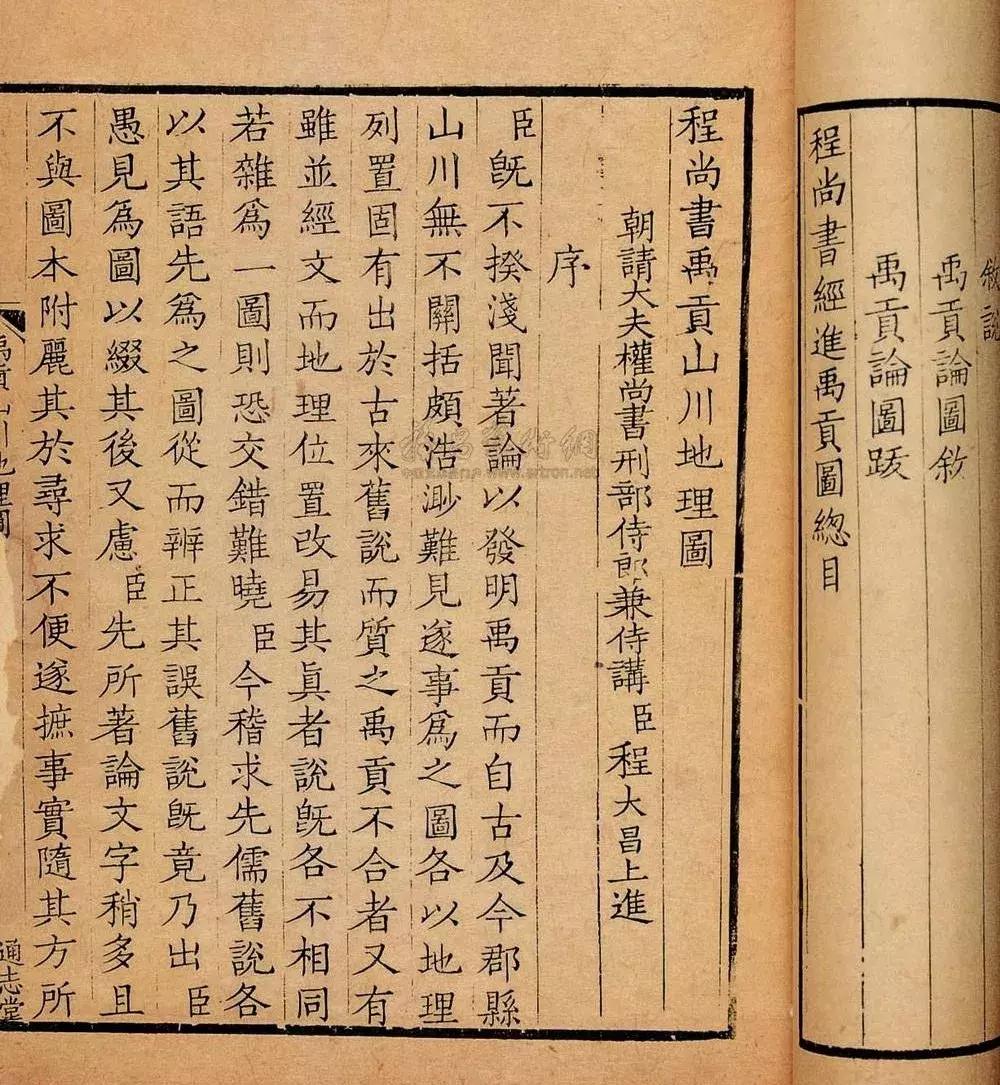 敘說
禹貢論圖敘
禹貢論圖跋
程尚書經進禹貢圖總目
程尚書禹貢山川地理圖
朝請大夫權尚書刑部侍郎兼侍講臣程大昌上進
序
臣旣不揆淺聞著論以發明禹貢而自古及今郡縣
山川無不關括頗浩渺難見遂事爲之圖各以地理
列置固有出於古來舊說而質之禹貢不合者又有
雖並經文而地理位置改易其眞者說旣各不相同
若雜爲一圖則恐交錯難曉臣今稽求先儒舊說各
以其語先爲之圖從而辨正其誤舊說旣竟乃出臣
愚見爲圖以綴其後又慮臣先所著論文字稍多且
不與圖本附麗其於尋求不便遂摭事實隨其方所
禹貢山川地理圖
通志堂
www.artron.net